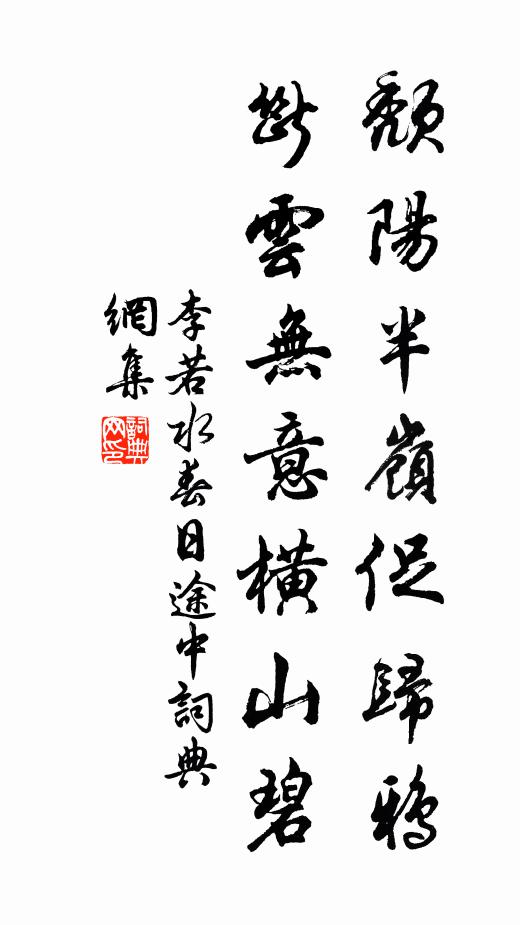 頹陽半嶺促歸鴉
斷雲無意橫山碧
李若水春日途中詞典
網集
詞典
网印